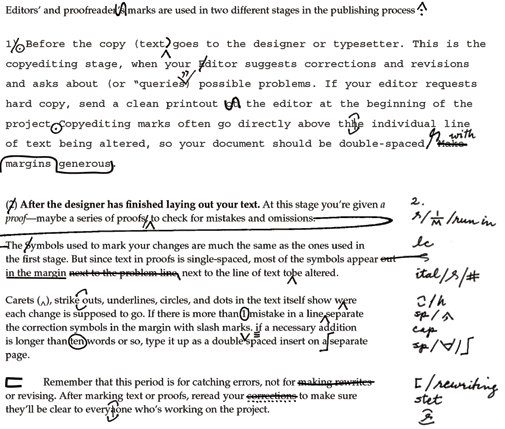 Editors' and proofreader's marks are used in two different stages in the publishing process:
1) Before the copy (text) goes to the designor or typesetter. This is the
copyediting stage, when your Editor suggests corrections and revisions
and asks about (or "queries) possible problems. If your editor requests
hard copy, send a clean printout to the editor at the beginning of the
project. Copyediting marks often go directly above thhe individual line
with
of text being altered, so your document should be double-spaced, Make
margins generous.
(2) After the designer has finished laying out your text. At this stage you're given a 2.
proof—maybe a series of proofs/to check for mistakes and omissions. / 1/M / run in
The Symbols used to mark your changes are much the same as the ones used in lc
the first stage. But since text in proofs is single-spaced, most of the symbols appear out s
in the margin next to the problem line, next to the line of text tobe altered. ital / / #
Carets (^), strike outs, underlines, circles, and dots in the text itself show were /h
each change is supposed to go. If there is more than 1 mistake in a line separate sp/^
the correction symbols in the margin with slash marks. if a necessary addition cap
is longer than ten words or so, type it up as a double spaced insert on a separate sp/
page.
[ Remember that this period is for catching errors, not for making rewrites [/rewriting
or revising. After marking text or proofs, reread your corrections to make sure stet
they'll be clear to everyaone who's working on the project.